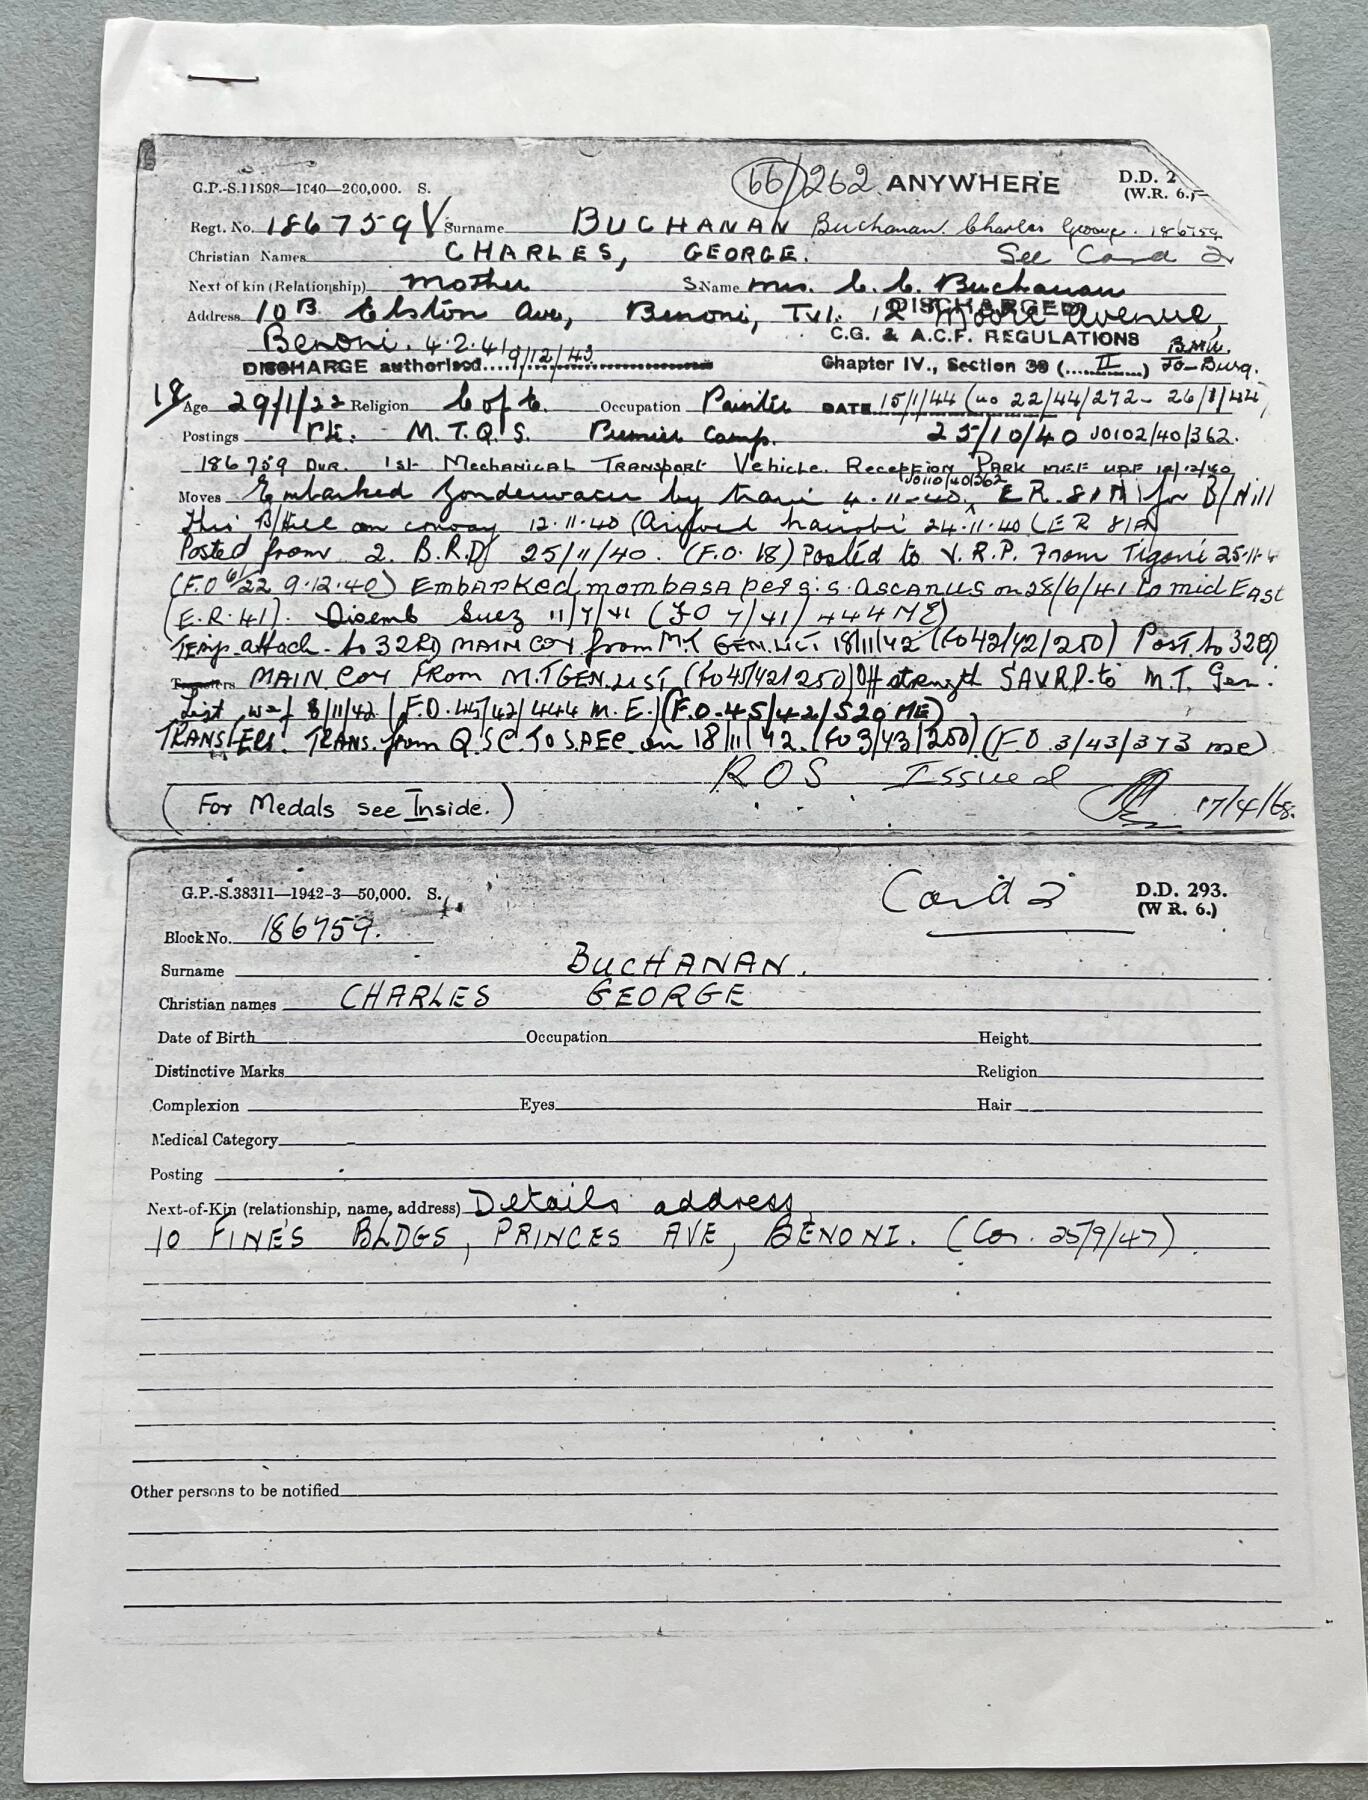 G.P.-S.11898—1940—200,000. S. 66/262 ANYWHERE D.D. 2
(W.R. 6.)
Regt. No. 186759 V Surname BUCHANAN Buchanan. Charles George. 186759
Christian Names CHARLES, GEORGE. See Card 2
Next of kin (Relationship) Mother Name Mrs. C. C. Buchanan
Address 10B. Elston Ave, Benoni, Tvl. 12 Moore Avenue,
DISCHARGED
Benoni. 4.2.41 C.G. & A.C.F. REGULATIONS
DISCHARGE authorised....9/12/43 Chapter IV., Section 38 (...II...) Jo-Burg.
18 Age 29/1/22 Religion C of E. Occupation Painter DATE 15/1/44 (no 22/44/272 - 26/1/44)
Postings Pte. M.T.Q.S. Premier Camp. 25/10/40 JO102/40/362.
186759 Dvr. 1st Mechanical Transport Vehicle Reception Park
JO110/40/362
Moves Embarked Zonderwater by train 4.11.40. E.R. 81A for B/Hill
This B/Hill on convoy 12.11.40 (Arrived Nairobi 24.11.40 (ER 81A)
Posted from 2. B.R.D. 25/11/40. (F.O. 18) Posted to V.R.P. From Tigoni
(F.O 61/22 9.12.40) Embarked Mombasa per s.s. Ascanius on 28/6/41 to mid East
(E.R.41). Disemb Suez 11/7/41 (FO 7/41/444ME)
Temp. attach. to 32RD MAIN COY from M.T. GEN. LIST 18/11/42 (FO42/42/250) Post. to 32RD
Transfers MAIN COY FROM M.T GEN. LIST (FO 45/42/250) Off strength SAVRP. to M.T. Gen.
List wef 8/11/42 (F.O. 45/42/444 M.E.) (F.O. 45/42/520 ME)
TRANSFERS: TRANS. from Q.S.C. TO S.PEC on 18/11/42. (FO 3/43/250) (FO 3/43/373 me)
ROS Issued
(For Medals see Inside.) 17/4/68.
G.P.-S.38311—1942-3—50,000. S. Card 2 D.D. 293.
(W R. 6.)
Block No. 186759.
Surname BUCHANAN.
Christian names CHARLES GEORGE
Date of Birth Occupation Height
Distinctive Marks Religion
Complexion Eyes Hair
Medical Category
Posting
Next-of-Kin (relationship, name, address) Details address
10 FINE'S BLDGS, PRINCES AVE, BENONI. (Cor. 25/9/47)
Other persons to be notified